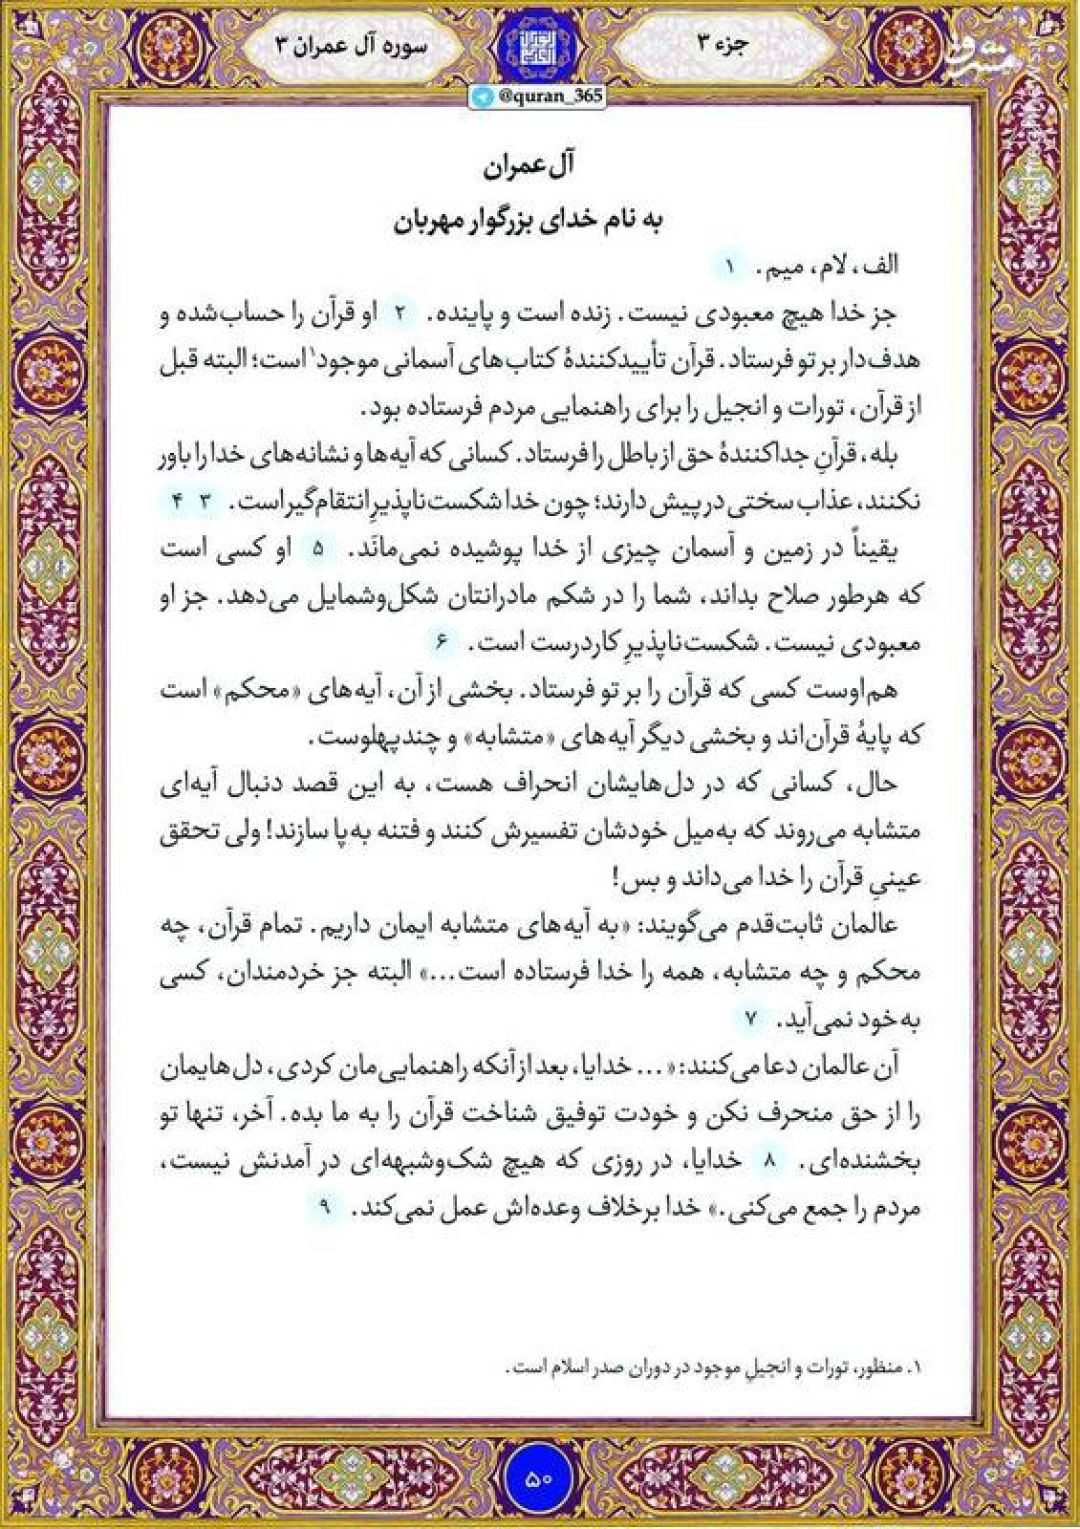 جزء ۳
سوره آل عمران ۳
مشرق
@quran_365
آل عمران
به نام خدای بزرگوار مهربان
الف، لام، میم. ۱
جز خدا هیچ معبودی نیست. زنده است و پاینده. ۲ او قرآن را حساب‌شده و
هدف‌دار بر تو فرستاد. قرآن تأییدکنندهٔ کتاب‌های آسمانی موجود۱ است؛ البته قبل
از قرآن، تورات و انجیل را برای راهنمایی مردم فرستاده بود.
بله، قرآنِ جداکنندهٔ حق از باطل را فرستاد. کسانی که آیه‌ها و نشانه‌های خدا را باور
نکنند، عذاب سختی در پیش دارند؛ چون خدا شکست‌ناپذیرِ انتقام‌گیر است. ۳ ۴
یقیناً در زمین و آسمان چیزی از خدا پوشیده نمی‌مانَد. ۵ او کسی است
که هرطور صلاح بداند، شما را در شکم مادرانتان شکل‌وشمایل می‌دهد. جز او
معبودی نیست. شکست‌ناپذیرِ کاردرست است. ۶
هم‌اوست کسی که قرآن را بر تو فرستاد. بخشی از آن، آیه‌های «محکم» است
که پایهٔ قرآن‌اند و بخشی دیگر آیه‌های «متشابه» و چندپهلوست.
حال، کسانی که در دل‌هایشان انحراف هست، به این قصد دنبال آیه‌ای
متشابه می‌روند که به‌میل خودشان تفسیرش کنند و فتنه به‌پا سازند! ولی تحقق
عینیِ قرآن را خدا می‌داند و بس!
عالمان ثابت‌قدم می‌گویند: «به آیه‌های متشابه ایمان داریم. تمام قرآن، چه
محکم و چه متشابه، همه را خدا فرستاده است...» البته جز خردمندان، کسی
به خود نمی‌آید. ۷
آن عالمان دعا می‌کنند: «... خدایا، بعد از آنکه راهنمایی‌مان کردی، دل‌هایمان
را از حق منحرف نکن و خودت توفیق شناخت قرآن را به ما بده. آخر، تنها تو
بخشنده‌ای. ۸ خدایا، در روزی که هیچ شک‌وشبهه‌ای در آمدنش نیست،
مردم را جمع می‌کنی.» خدا برخلاف وعده‌اش عمل نمی‌کند. ۹
۱. منظور، تورات و انجیلِ موجود در دوران صدر اسلام است.
۵۰